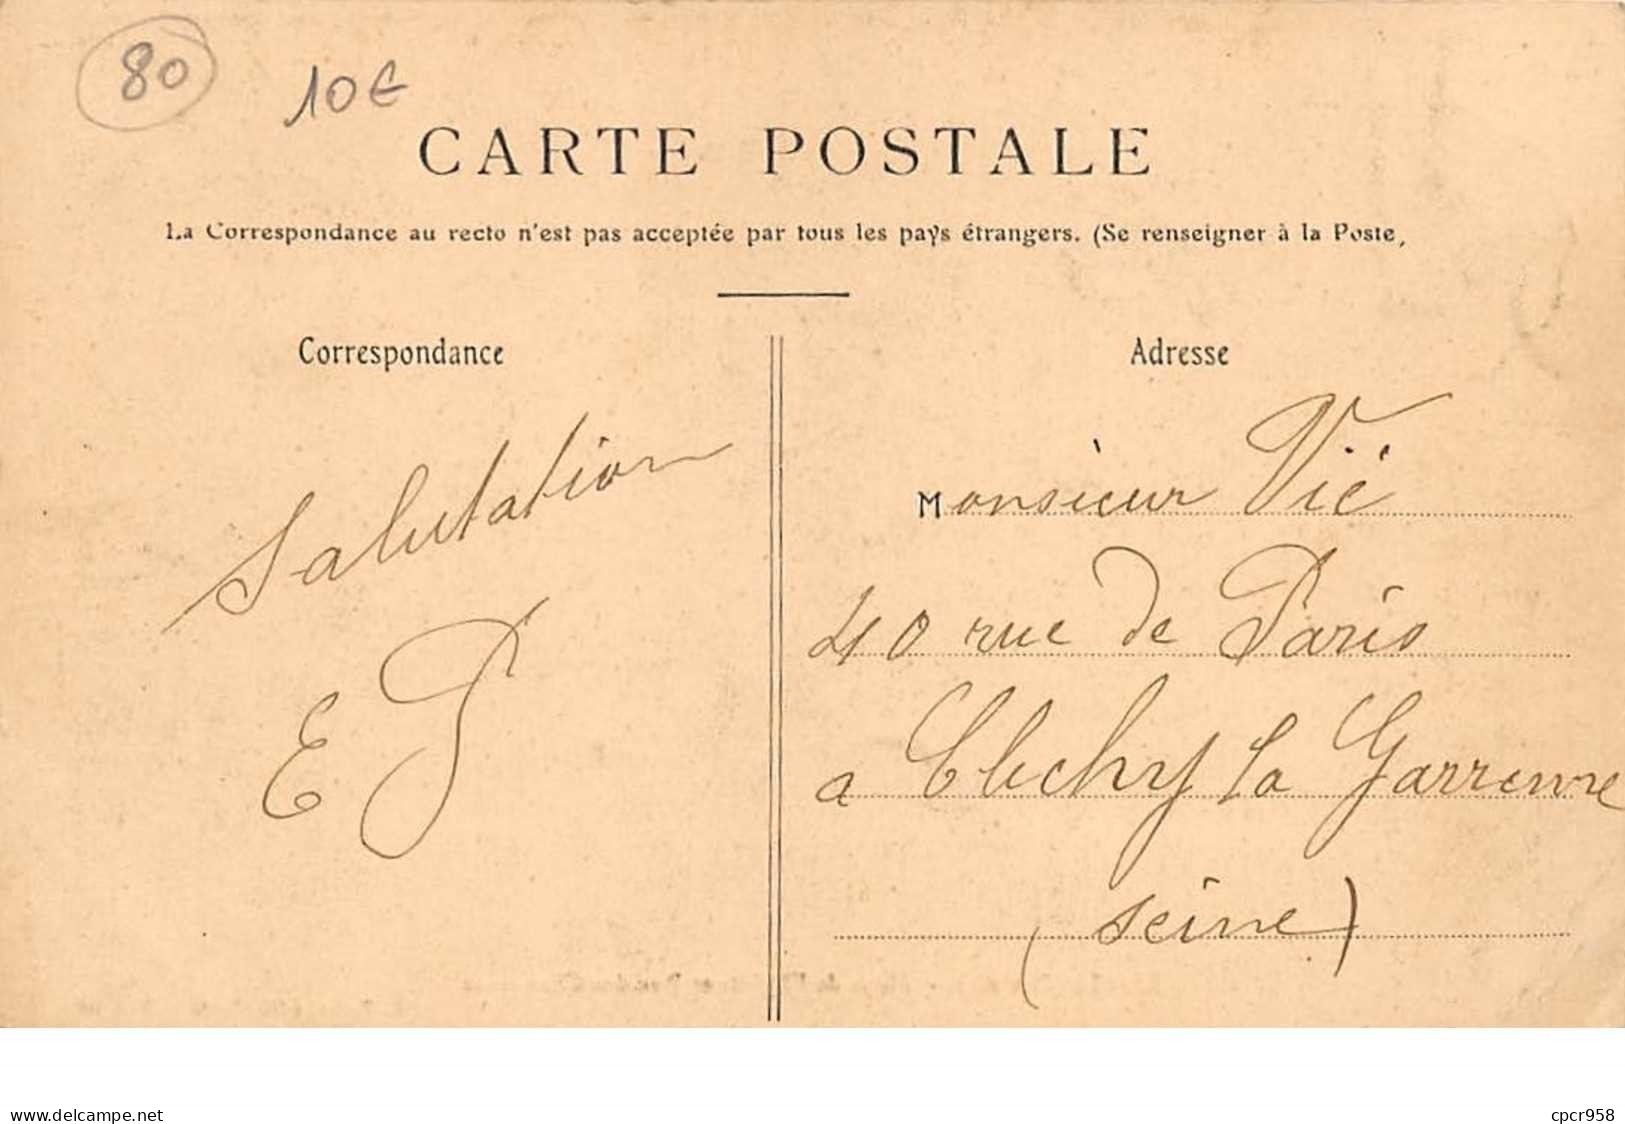 80
10€
CARTE POSTALE
La Correspondance au recto n'est pas acceptée par tous les pays étrangers. (Se renseigner à la Poste,
Correspondance
Salutation
E P
Adresse
Monsieur Vié
40 rue de Paris
a Clichy la Garrenne
(Seine)
www.delcampe.net
cpcr958